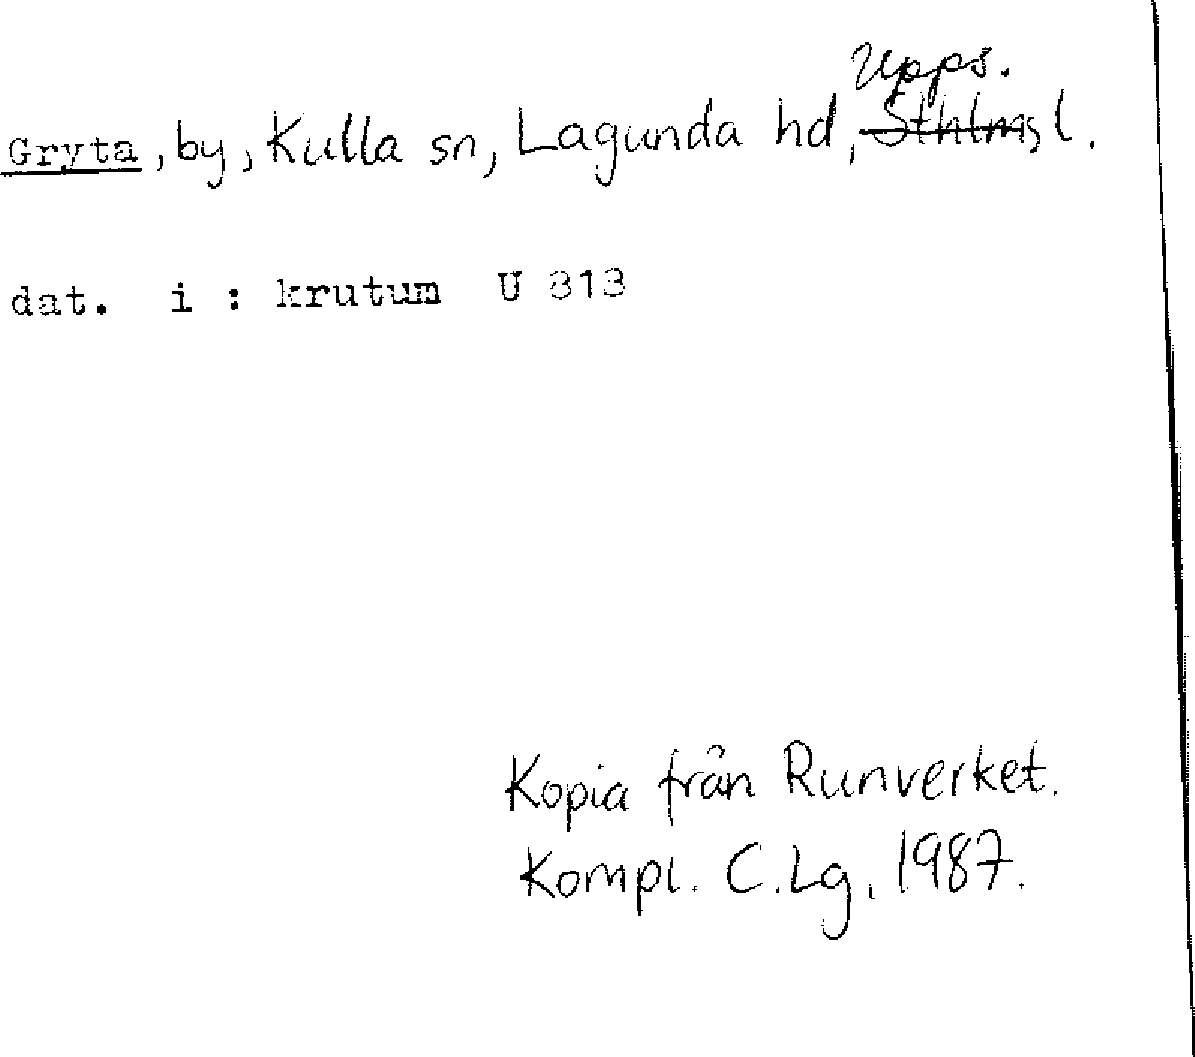 Upps.
Gryta, by, Kulla sn, Lagunda hd, Sthlms l.
dat. i : krutum U 813
Kopia från Runverket.
Kompl. C.Lg, 1987.